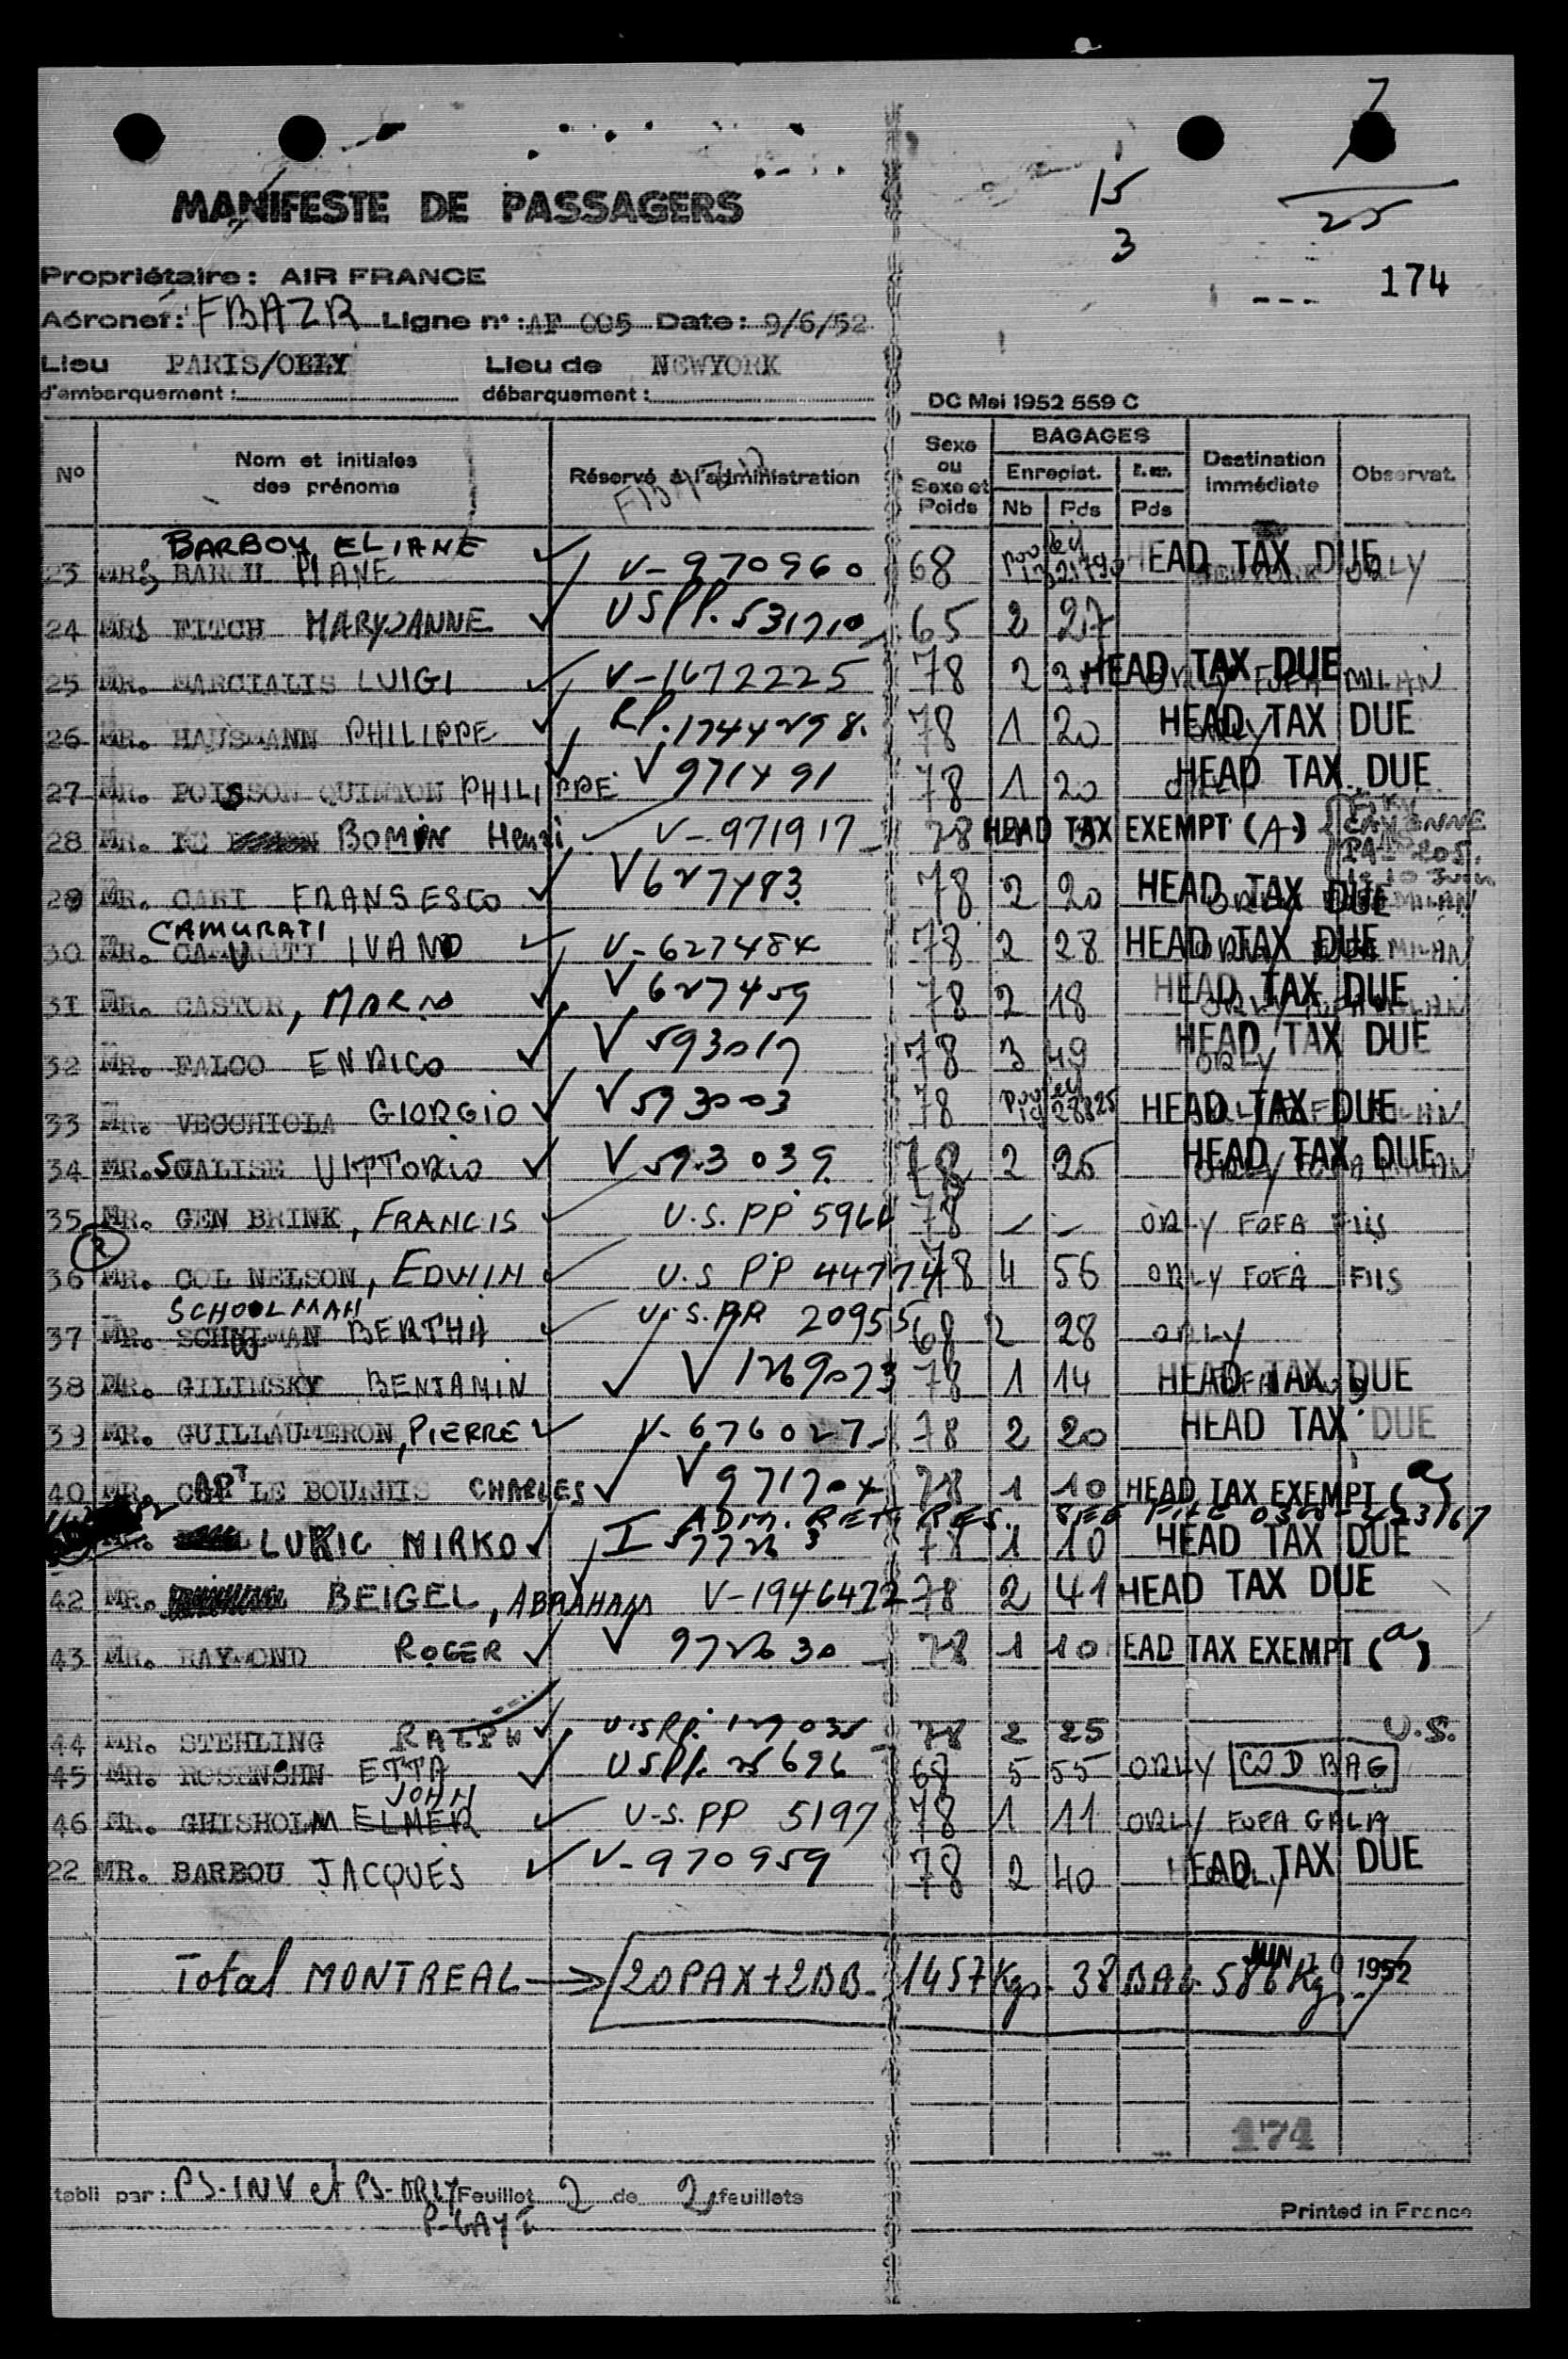 7
15
25
3
MANIFESTE DE PASSAGERS
174
Propriétaire : AIR FRANCE
Aéronef : FBAZR Ligne n° : AF 005 Date : 9/6/52
Lieu d'embarquement : PARIS/ORLY Lieu de débarquement : NEWYORK
DC Mai 1952 559 C
N° Nom et initiales des prénoms Réservé à l'administration Sexe ou Sexe et Poids BAGAGES Enregist. Nb Pds Pds Destination immédiate Observat.
BARBOU ELIANE
23 V-970960 68 HEAD TAX DUE NEWYORK ORLY
24 FITCH MARYJANNE USPP. 531710 65 2 27
25 MR. MARCIALIS LUIGI V-1672225 78 2 HEAD TAX DUE ORLY FOFA MILAN
26 MR. HAUSMANN PHILIPPE RP. 1744298. 78 1 20 HEAD TAX DUE ORLY
27 MR. POISSON QUINTON PHILIPPE V 971491 78 1 20 HEAD TAX DUE
28 MR. BOMIN Henri V-971917 78 HEAD TAX EXEMPT (A) CAYENNE
29 MR. CARI FRANSESCO V627483 78 2 20 HEAD TAX DUE ORLY MILAN
CAMURATI
30 MR. IVANO V-627484 78 2 28 HEAD TAX DUE MILAN
31 MR. CASTOR, MARIO V 627459 78 2 18 HEAD TAX DUE
32 MR. FALCO ENRICO V 593017 78 3 49 HEAD TAX DUE ORLY
33 MR. VECCHIOLA GIORGIO V593003 78 HEAD TAX DUE
34 MR. SCALISE VITTORIO V 593039 78 2 25 HEAD TAX DUE
35 MR. GEN BRINK, FRANCIS U.S. PP 78 - - ORLY FOFA
36 MR. COL NELSON, EDWIN U.S PP 78 4 56 ORLY FOFA
SCHOOLMAN
37 MR. BERTHA U.S. PP 20955 68 2 28 ORLY
38 MR. GILINSKY BENJAMIN V 1269073 78 1 14 HEAD TAX DUE
39 MR. GUILLAUMERON, PIERRE V-676027 78 2 20 HEAD TAX DUE
40 MR. CAPT LE CHARLES V 971704 78 1 10 HEAD TAX EXEMPT (a)
ADM. RET. RES. SEE FILE 0300-423167
LUKIC MIRKO I 78 1 10 HEAD TAX DUE
42 MR. BEIGEL, ABRAHAM V-1946472 78 2 41 HEAD TAX DUE
43 MR. RAYMOND ROGER V 972630 78 1 10 HEAD TAX EXEMPT (a)
44 MR. STEHLING RALPH U.S.PP. 78 2 25 U.S.
45 MR. ETTA USPP. 68 5 55 ORLY COD BAG
JOHN
46 MR. GHISHOLM ELMER U.S. PP 5197 78 1 11 ORLY FOFA
22 MR. BARBOU JACQUES V-970959 78 2 40 HEAD TAX DUE
Total MONTREAL → 20 PAX + 2BB 1457 Kgs 38 BAG 586 Kgs
JUN 1952
174
Etabli par : PS-INV et PS-ORLY Feuillet 2 de 2 feuillets
Printed in France